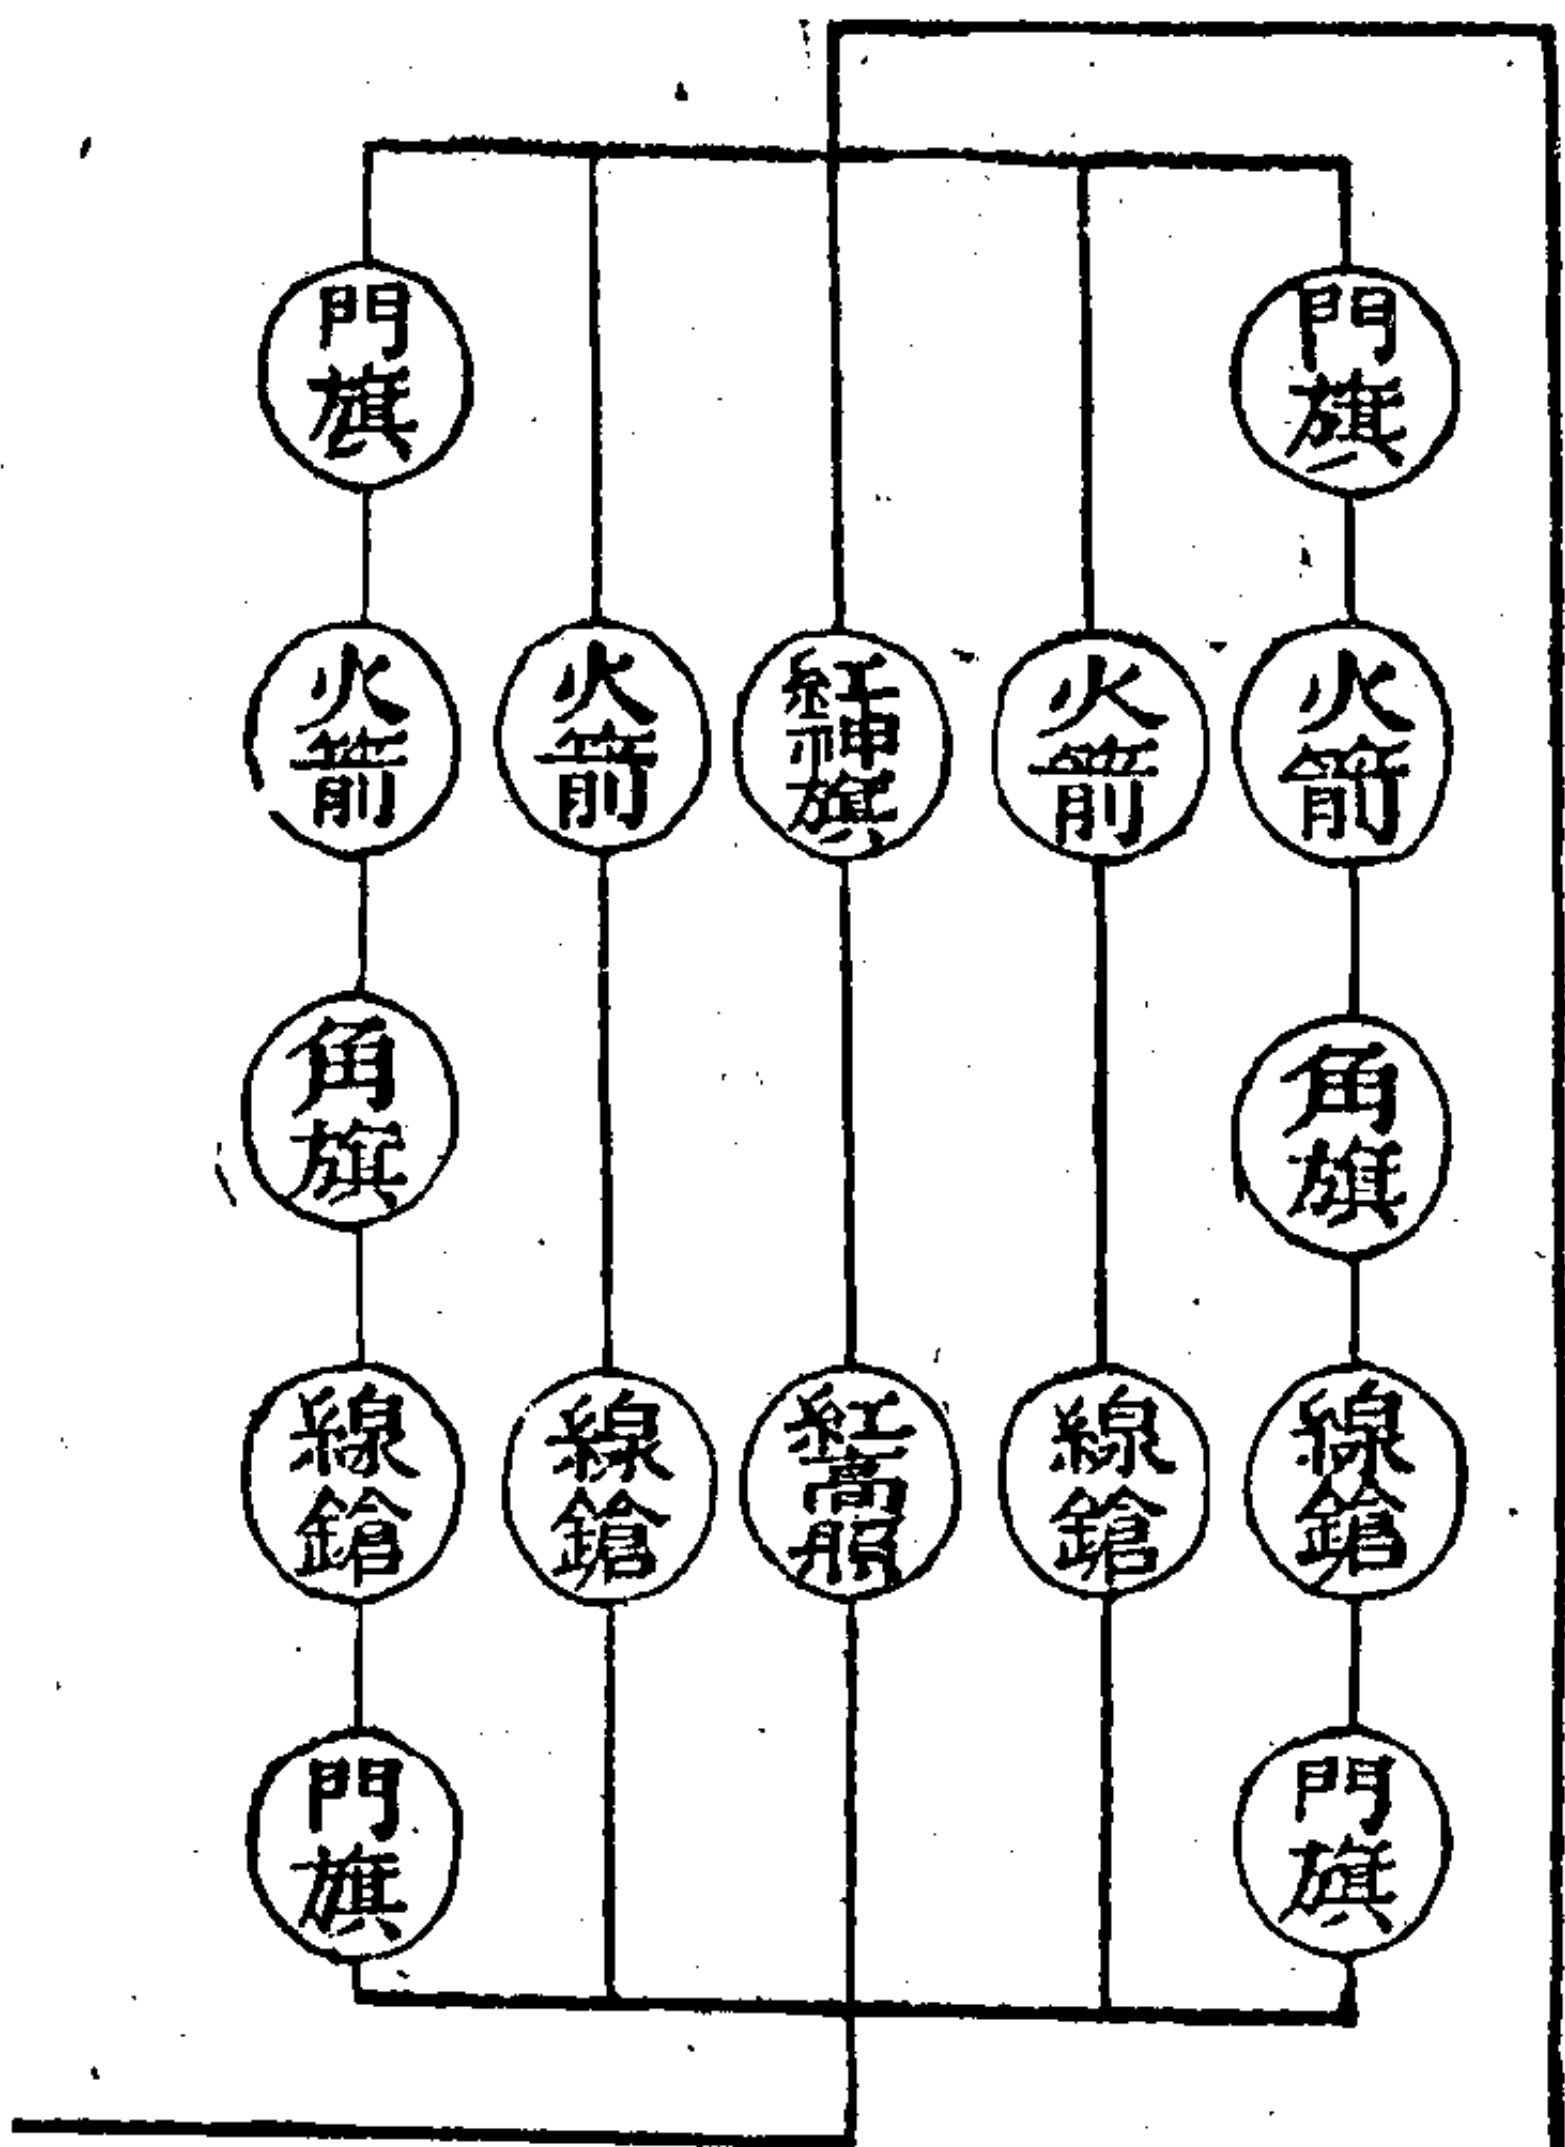 門旗
火箭
角旗
線鎗
門旗
火箭
線鎗
紅神旗
紅高照
火箭
線鎗
門旗
火箭
角旗
線鎗
門旗